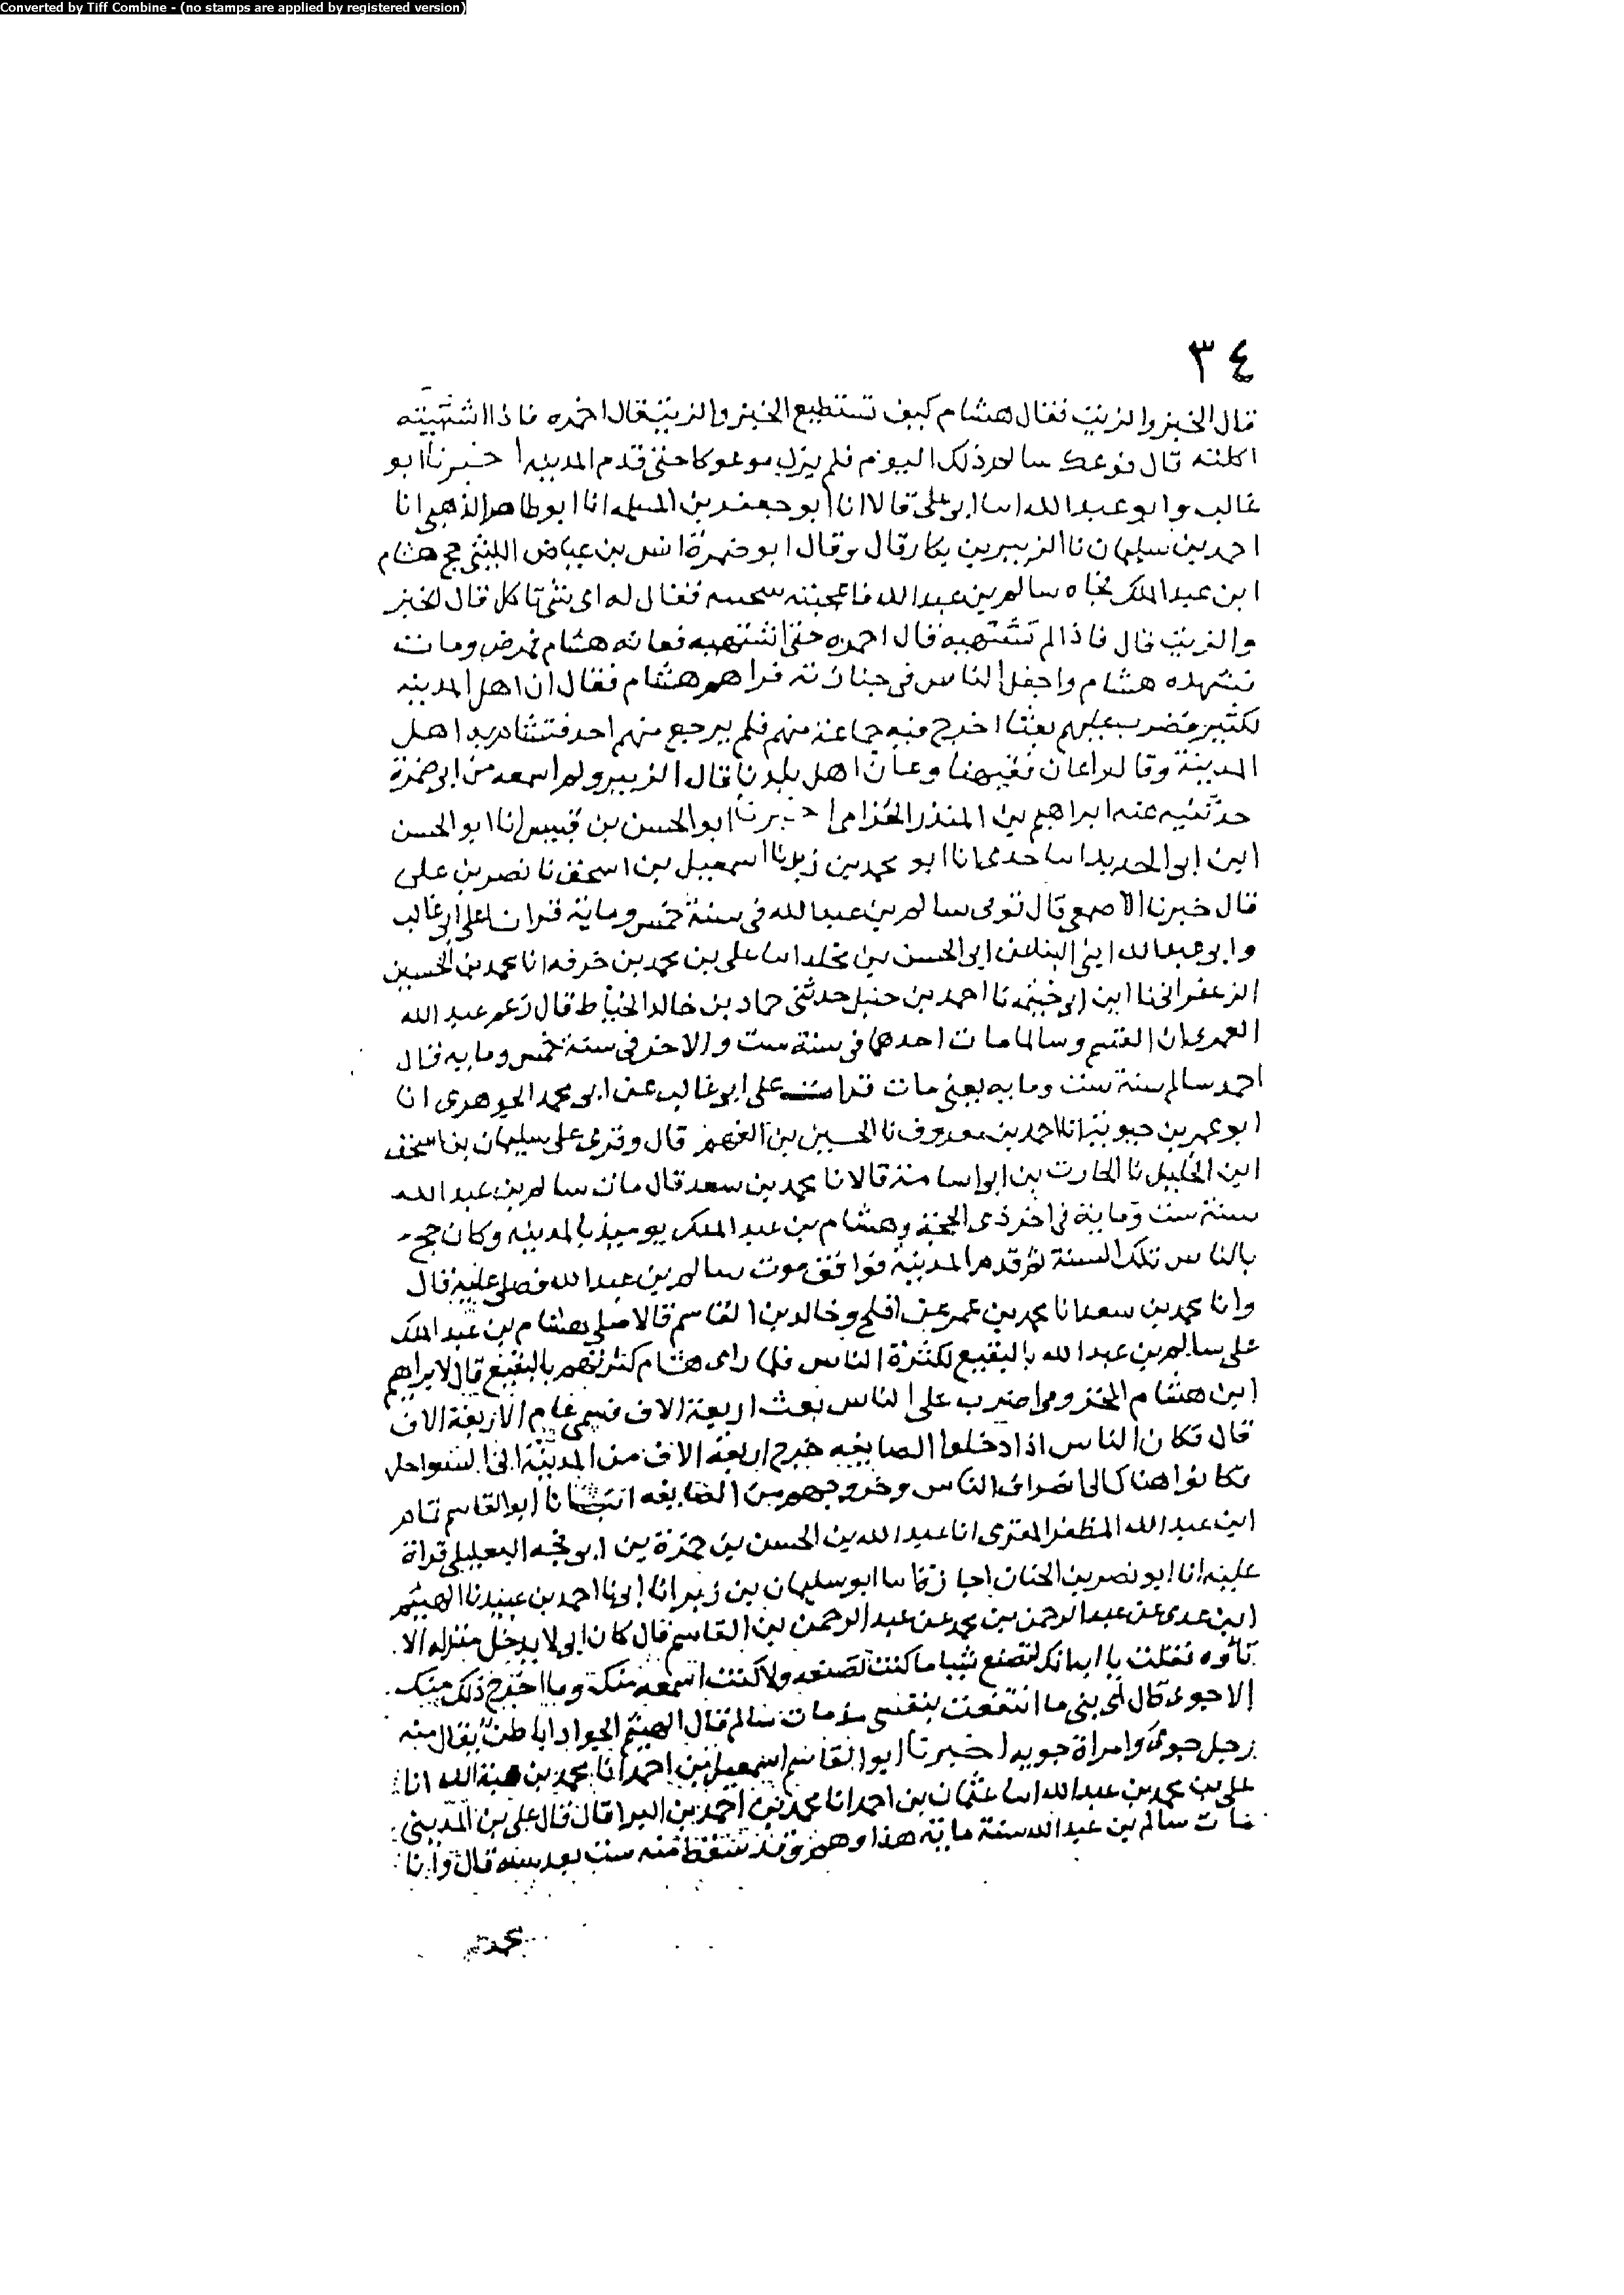 Converted by Tiff Combine - (no stamps are applied by registered version)
٣٤
قال الخبز والزيت فقال هشام كيف تستطيع الخبز والزيت قال اخمره فاذا اشتهيته
اكلته قال فوعك سالم ذلك اليوم فلم يزل موعوكا حتى قدم المدينه اخبرنا ابو
غالب وابو عبد الله ابنا ابي على قالا انا ابو جعفر بن المسلمه انا ابو طاهر الذهبي انا
احمد بن سليمان نا الزبير بن بكار قال وقال ابو ضمرة انس بن عياض الليثي حج هشام
ابن عبد الملك فجاه سالم بن عبد الله فاعجبته سحنته فقال له اي شي تاكل قال الخبز
والزيت قال فاذا لم تشتهيه قال اخمره حتى اشتهيه فعانه هشام فمرض ومات
فشهده هشام واجفل الناس في جنازته فراهم هشام فقال ان اهل المدينه
لكثير فضرب عليهم بعثا اخرج فيه جماعة منهم فلم يرجع منهم احد فتشادم به اهل
المدينة وقالوا عان فقيهنا وعان اهل بلدنا قال الزبير ولم اسمعه من ابي ضمرة
حدثنيه عنه ابراهيم بن المنذر الحزامي اخبرنا ابو الحسن بن قبيس انا ابو الحسن
ابن ابي الحديد انا جدي انا ابو محمد بن زبر نا اسمعيل بن اسحق نا نصر بن على
قال خبرنا الاصمعي قال توفي سالم بن عبد الله في سنة خمس وماية قرات على ابي غالب
وابي عبد الله ابني البنا عن ابي الحسن بن مخلد انا على بن محمد بن خزفه انا محمد بن الحسين
الزعفراني نا ابن ابي خيثمه نا احمد بن حنبل حدثني حماد بن خالد الخياط قال زعم عبد الله
العمري ان القسم وسالما مات احدهما في سنة ست والاخر في سنة خمس ومايه قال
احمد سالم سنة ست ومايه يعني مات قرات على ابي غالب عن ابي محمد الجوهري انا
ابو عمر بن حيويه انا احمد بن معروف نا الحسين بن الفهم قال وقري على سليمان بن اسحق
ابن الخليل نا الحارث بن ابي اسامة قالا نا محمد بن سعد قال مات سالم بن عبد الله
سنة ست وماية في اخر ذي الحجة وهشام بن عبد الملك يوميذ بالمدينه وكان حج
بالناس تلك السنة ثم قدم المدينة فوافق موت سالم بن عبد الله فصلى عليه قال
وانا محمد بن سعد انا محمد بن عمر عن افلح وخالد بن القاسم قالا صلى هشام بن عبد الملك
على سالم بن عبد الله بالبقيع لكثرة الناس فلما راى هشام كثرتهم بالبقيع قال لابراهيم
ابن هشام المخزومي اضرب على الناس بعث اربعة الاف فسمي عام الاربعة الاف
قال فكان الناس اذا دخلوا الصايفه خرج اربعة الاف من المدينة الى السواحل
فكانوا هناك الى انصراف الناس وخروجهم من الصايفه انبانا ابو القاسم تمام
ابن عبد الله المظفر المقري انا عبد الله بن الحسن بن حمزة بن ابي فجه البعلبكي قراة
عليه انا ابو نصر بن الجبان اجازة انا ابو سليمان بن زبر انا ابي نا احمد بن عبيد نا الهيثم
ابن عدي عن عبد الرحمن بن محمد عن عبد الرحمن بن القاسم قال كان ابي لا يدخل منزله الا
تاوه فقلت يا ابه انك لتصنع شيا ما كنت تصنعه ولا كنت اسمعه منك وما اخرج ذلك منك
الا جوى قال اي بني ما انتفعت بنفسي مذ مات سالم قال الهيثم الجوا داء باطن يقال منه
رجل جوى وامراة جويه اخبرنا ابو القاسم اسمعيل بن احمد انا محمد بن هبة الله انا
على بن محمد بن عبد الله انا عثمان بن احمد انا محمد بن احمد بن البرا قال قال على بن المديني
مات سالم بن عبد الله سنة ماية هذا وهم وقد سقط منه ست بعد سنه قال وانا
محمد